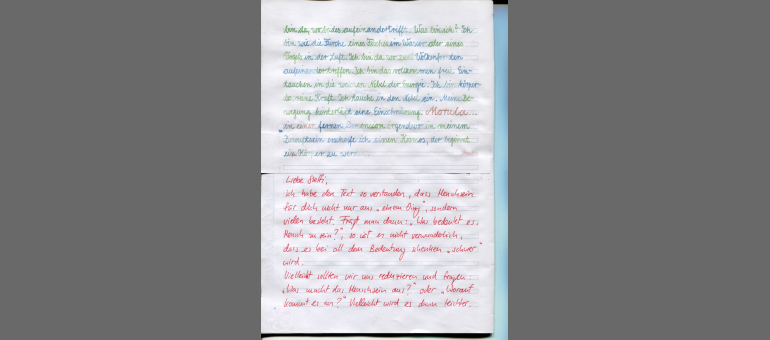 bin da, wo beides aufeinandertrifft. Was bin ich? Ich
bin wie die Furche eines Fisches im Wasser oder eines
Vogels in der Luft. Ich bin da wo zwei Wolkenfor
aufeinandertreffen. Ich bin das vollkommen frei. Ein-
tauchen in die weissen Nebel der Energie. Ich bin körper-
lo reine Kraft. Ich tauche in den Nebel ein. Meine Be-
wegung hinterlässt eine Einschnürung.
in einer fernen Dimension irgendwo in meinem
Bewusstsein erschaffe ich einen Kosmos, der beginnt
ein Körper zu werden
Liebe Steffi,
ich habe den Text so verstanden, dass Menschsein
für dich nicht nur aus „einem Ding", sondern
vielen besteht. Fragt man dann: „Was bedeutet es,
Mensch zu sein?", so ist es nicht verwunderlich,
dass es bei all dem Bedeutung schenken „schwer"
wird.
Vielleicht sollten wir uns reduzieren und fragen:
„Was macht das Menschsein aus?" oder „Worauf
kommt es an?" Vielleicht wird es dann leichter.